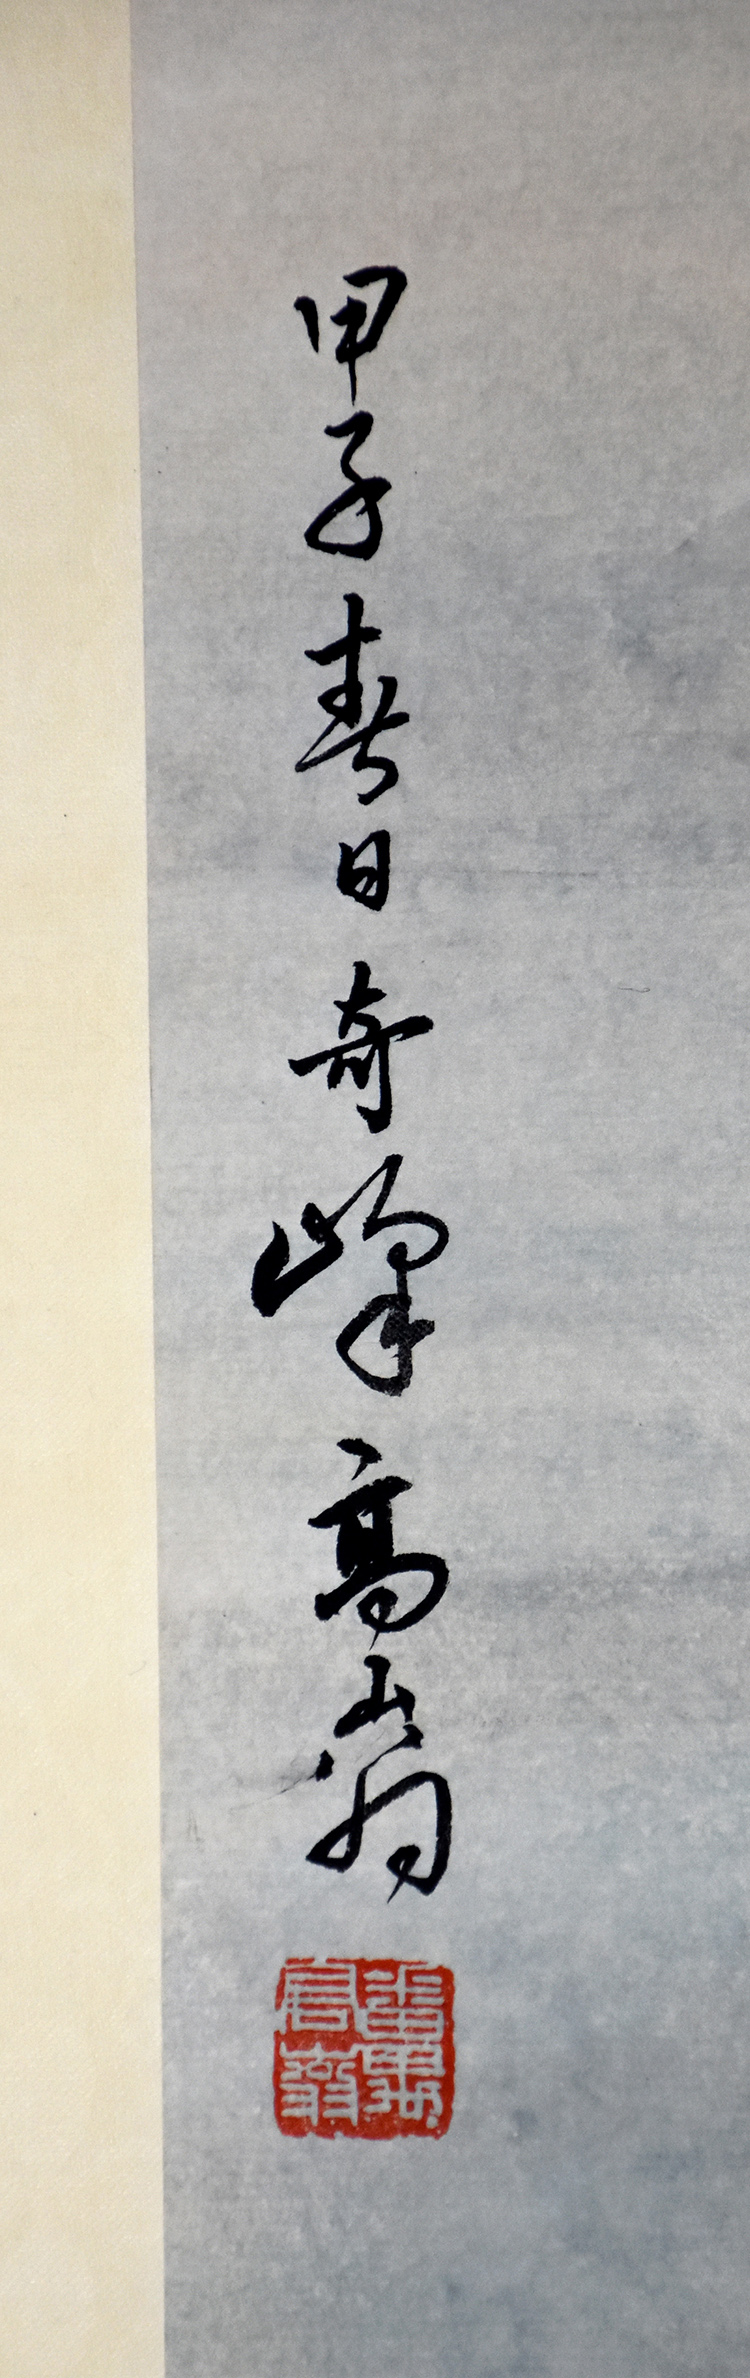 甲子春日奇峰高嵡